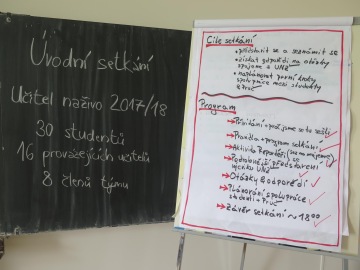 Úvodní setkání
Učitel naživo 2017/18
30 studentů
16 provázejících učitelů
8 členů týmu
Cíle setkání
• představit se a seznámit se
• získat odpovědi na otázky
spojené s UNŽ
• naplánovat první kroky
spolupráce mezi studenty
a PruČ
Program
Přivítání + proč jsme se tu sešli
Pravidla + program setkání
Aktivita Reportéři
Podrobnější představení
výcviku UNŽ
Otázky & odpovědi
Plánování spolupráce
studenti + PruČ
Závěr setkání ~ 18:00